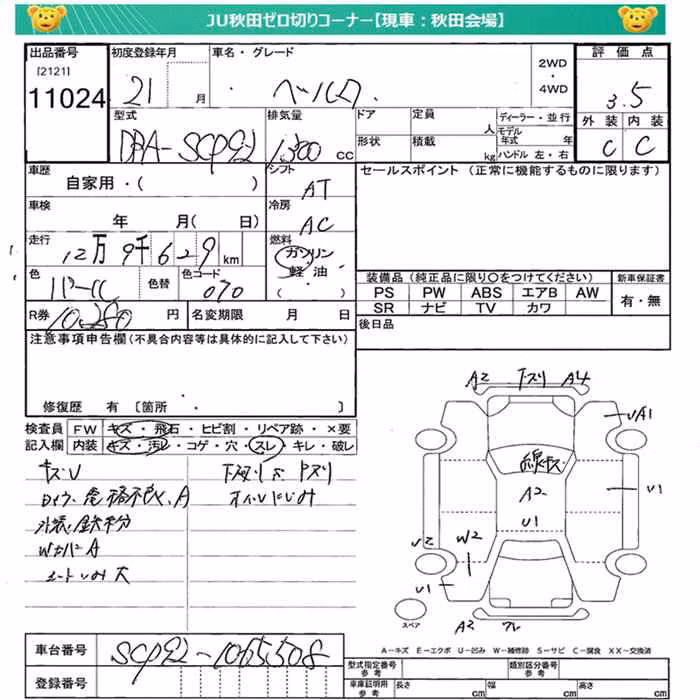 JU秋田ゼロ切りコーナー【現車：秋田会場】
出品番号
[2121]
11024
初度登録年月
21 月
車名・グレード
・ベルタ.
2WD
・
4WD
評価点
3.5
外装 内装
C C
型式
DBA-SCP92
排気量
1,300 CC
ドア
定員
人
ディーラー・並行
モデル年式 年
形状
積載
kg
ハンドル 左・右
車歴
自家用・( )
シフト
AT
セールスポイント (正常に機能するものに限ります)
車検
年 月( 日)
冷房
AC
走行
12万9千629km
燃料
ガソリン
軽油・
( )
色
パール
色替
色コード
070
装備品 (純正品に限り〇をつけてください)
新車保証書
PS PW ABS エアB AW
SR ナビ TV カワ
有・無
R券
10,280 円
名変期限 月 日
後日品
注意事項申告欄(不具合内容等は具体的に記入して下さい)
修復歴 有 [箇所・ ]
検査員
記入欄
FW キズ・飛石・ヒビ割・リペア跡・×要
内装 キズ・汚レ・コゲ・穴・スレ・キレ・破レ
キズU
外装鉄粉
WカバーA
A2 下スリ A4
UA1
線キズ
A2
U1
U1
U2
W2
U1
A2
スペア
A-キズ E-エクボ U-凹み W-補修跡 S-サビ C-腐食 XX-交換済
車台番号
SCP92-1065508
登録番号
型式指定番号
参考
類別区分番号
参考
車庫証明用
参考
長さ cm
幅 cm
高さ cm